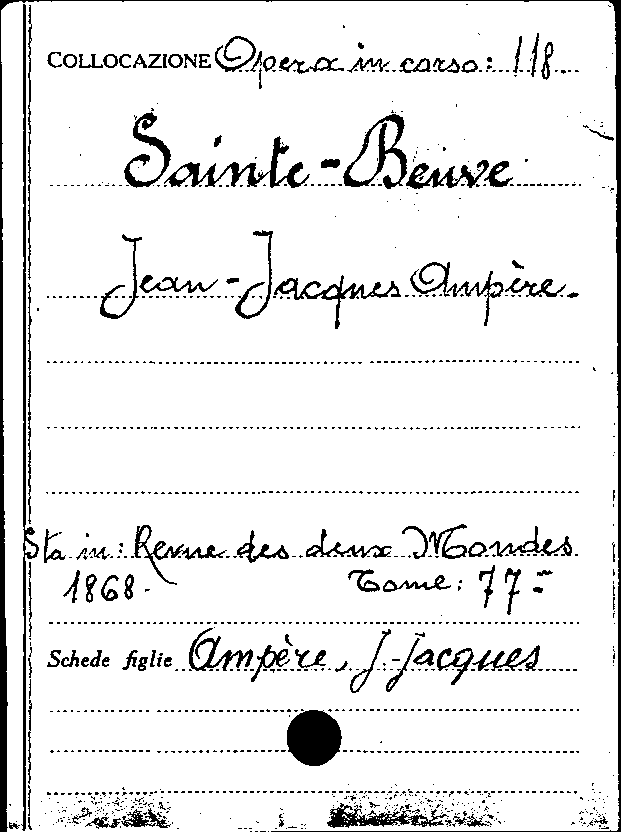 COLLOCAZIONE Opera in corso: 118.
Sainte-Beuve
Jean-Jacques Ampère.
Sta in: Revue des deux Mondes
1868. Tome: 77=
Schede figlie Ampère, J.-Jacques